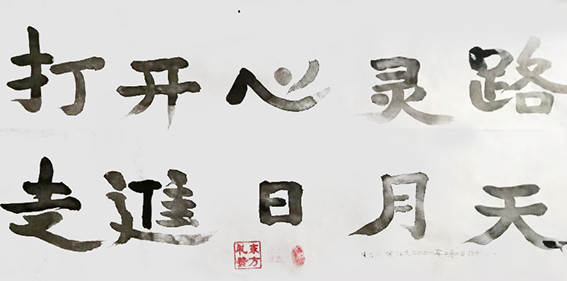 打开心灵路
走進日月天
東方
礼赞